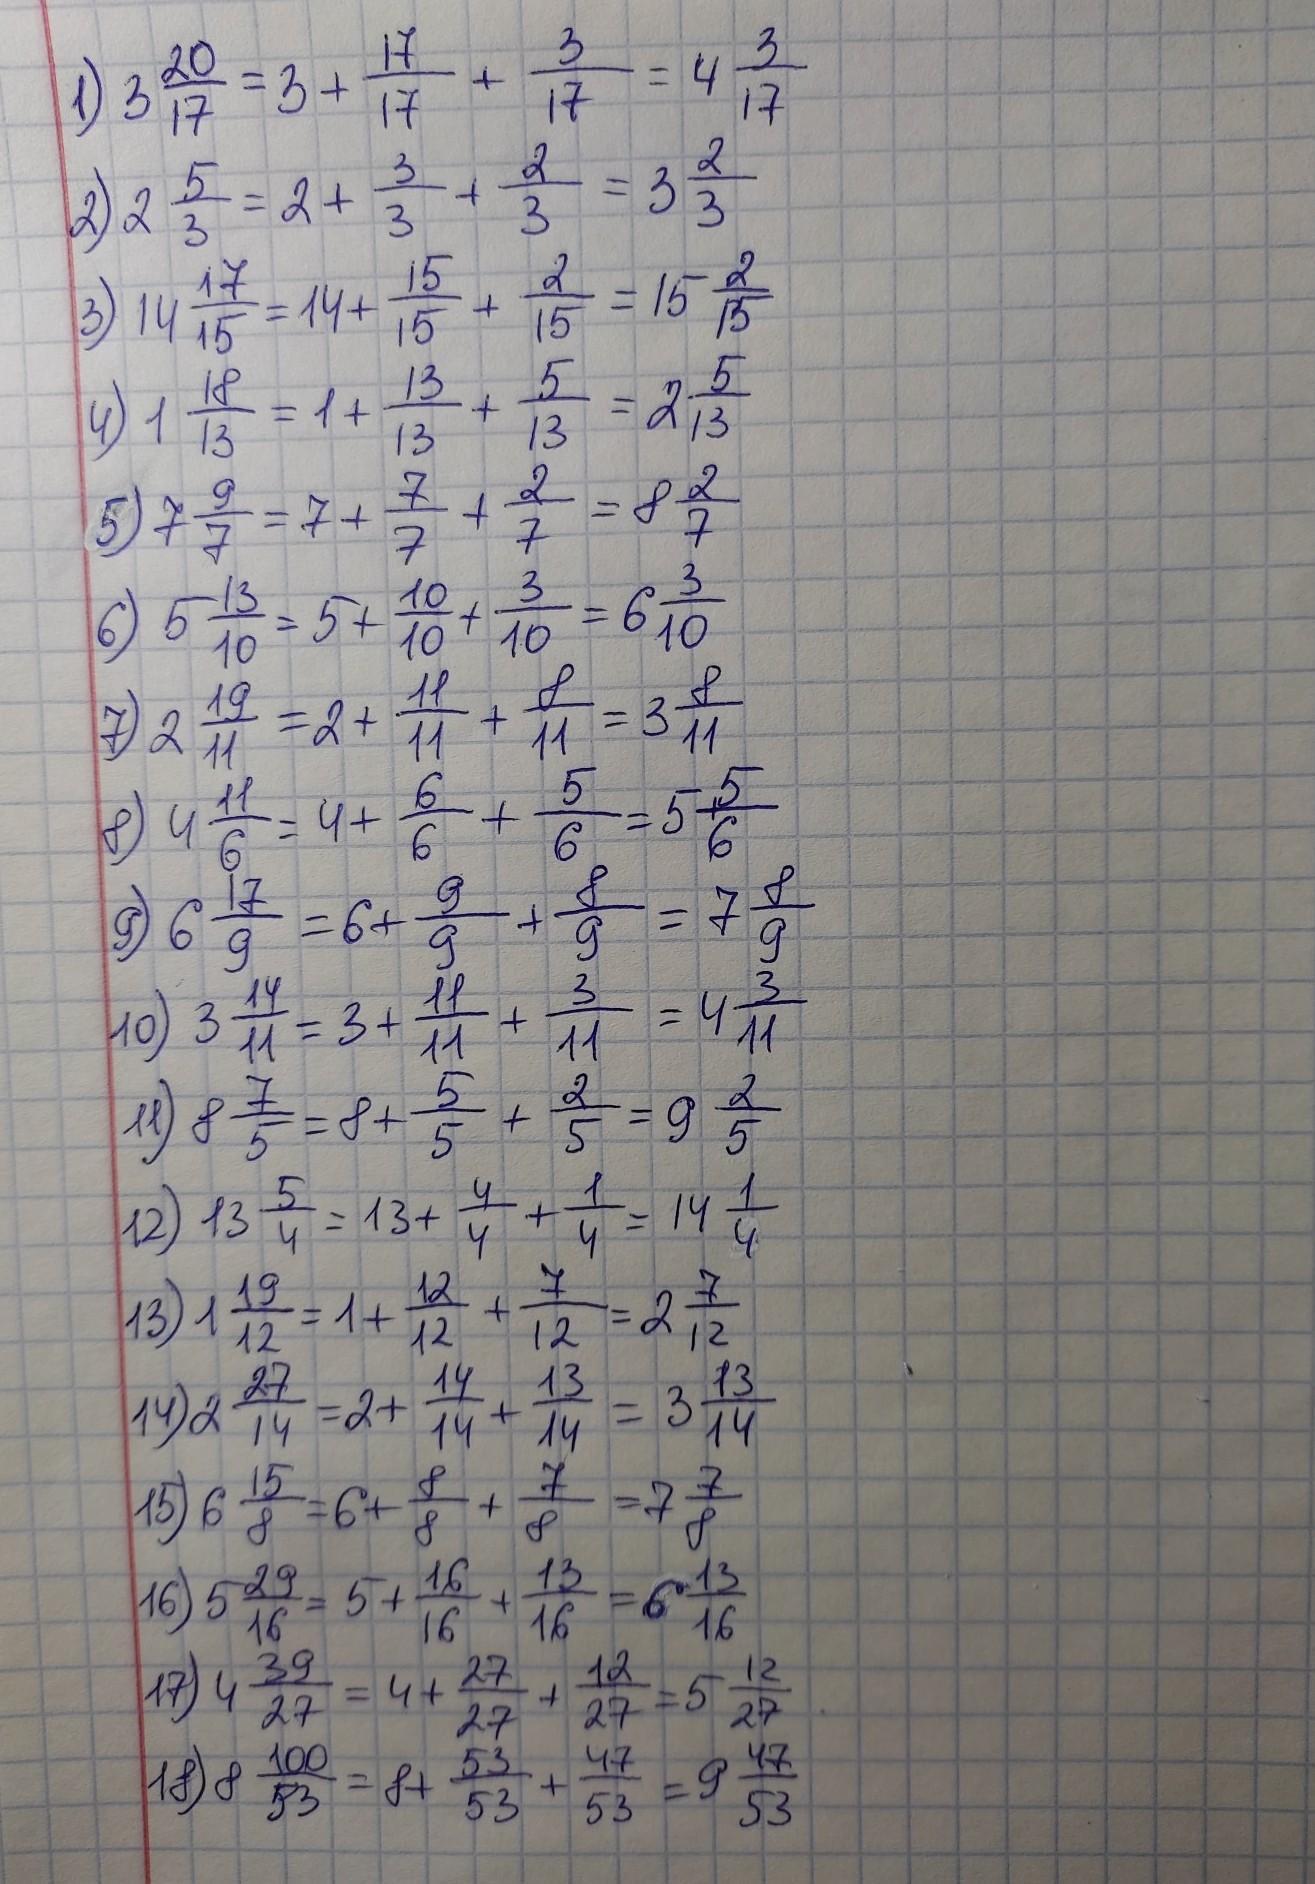 1) 3 20/17 = 3 + 17/17 + 3/17 = 4 3/17
2) 2 5/3 = 2 + 3/3 + 2/3 = 3 2/3
3) 14 17/15 = 14 + 15/15 + 2/15 = 15 2/15
4) 1 18/13 = 1 + 13/13 + 5/13 = 2 5/13
5) 7 9/7 = 7 + 7/7 + 2/7 = 8 2/7
6) 5 13/10 = 5 + 10/10 + 3/10 = 6 3/10
7) 2 19/11 = 2 + 11/11 + 8/11 = 3 8/11
8) 4 11/6 = 4 + 6/6 + 5/6 = 5 5/6
9) 6 17/9 = 6 + 9/9 + 8/9 = 7 8/9
10) 3 14/11 = 3 + 11/11 + 3/11 = 4 3/11
11) 8 7/5 = 8 + 5/5 + 2/5 = 9 2/5
12) 13 5/4 = 13 + 4/4 + 1/4 = 14 1/4
13) 1 19/12 = 1 + 12/12 + 7/12 = 2 7/12
14) 2 27/14 = 2 + 14/14 + 13/14 = 3 13/14
15) 6 15/8 = 6 + 8/8 + 7/8 = 7 7/8
16) 5 29/16 = 5 + 16/16 + 13/16 = 6 13/16
17) 4 39/27 = 4 + 27/27 + 12/27 = 5 12/27
18) 8 100/53 = 8 + 53/53 + 47/53 = 9 47/53